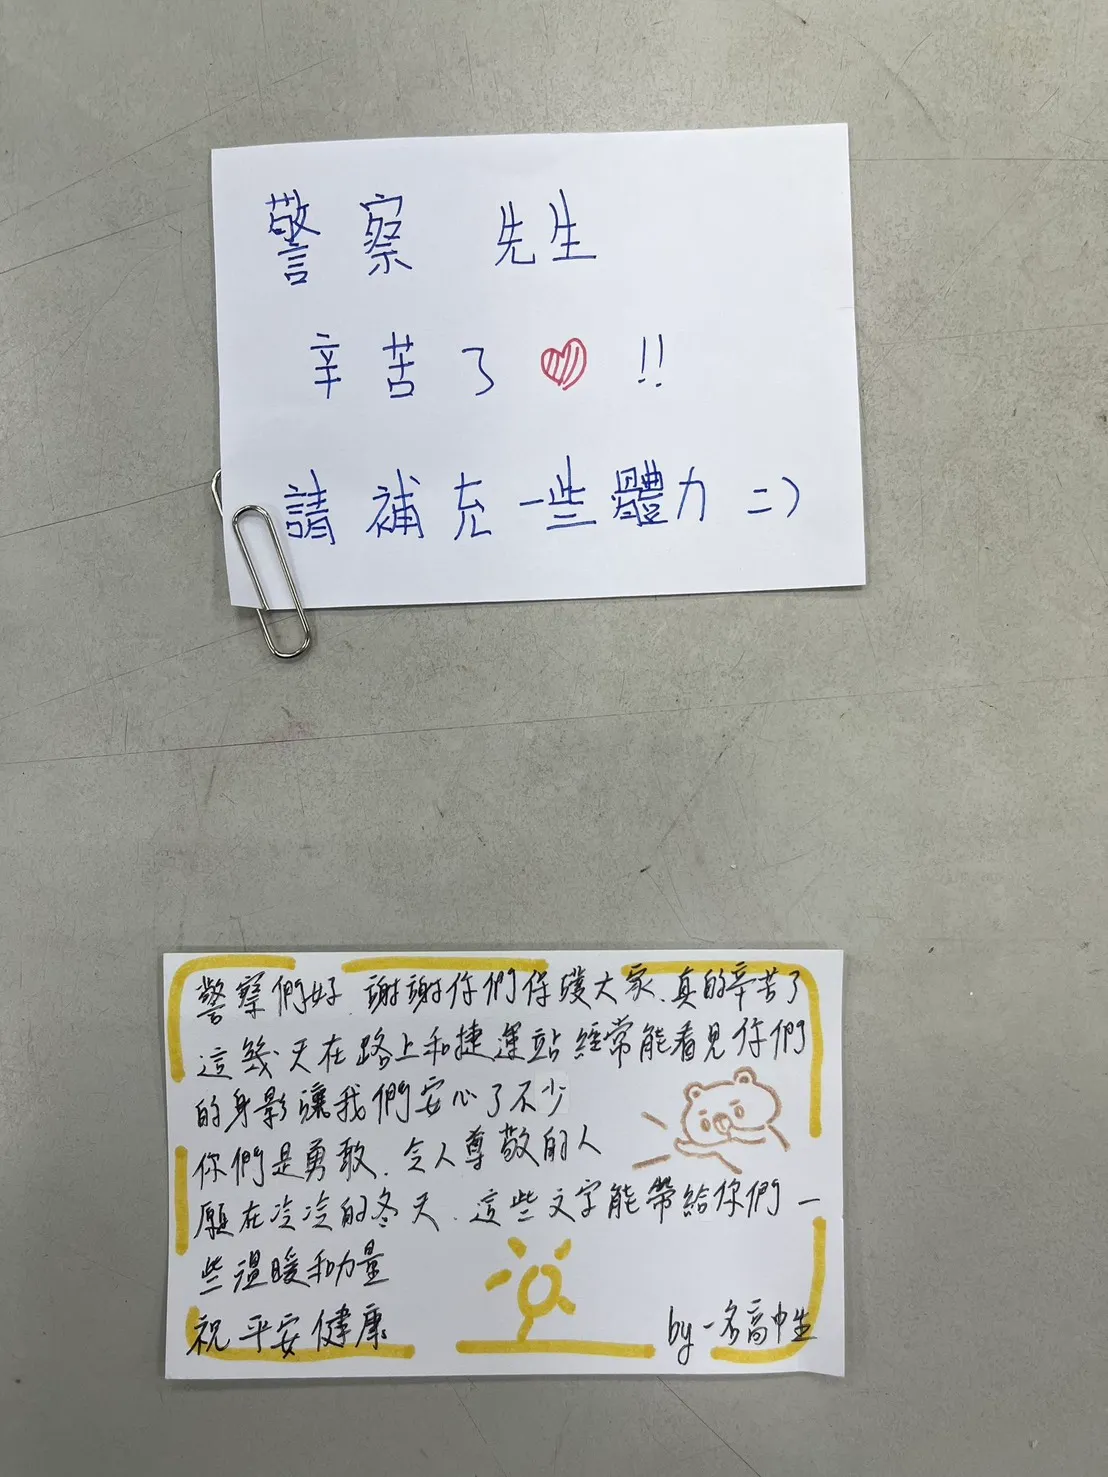 警察 先生
辛苦了 ♥ !!
請補充一些體力 =)
警察們好，謝謝你們保護大家，真的辛苦了
這幾天在路上和捷運站經常能看見你們
的身影讓我們安心了不少
你們是勇敢、令人尊敬的人
願在冷冷的冬天，這些文字能帶給你們一
些溫暖和力量
祝 平安健康
by 一名高中生